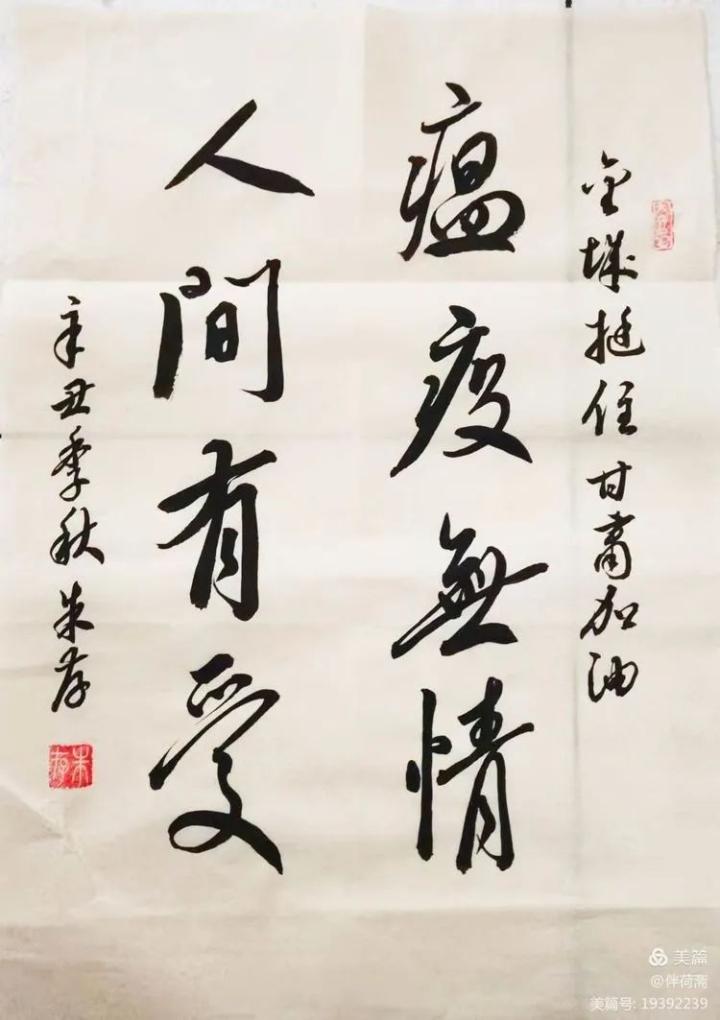 金城挺住甘肃加油
瘟疫無情
人間有愛
辛丑季秋朱存
朱存
美篇
@伴荷斋
美篇号: 19392239